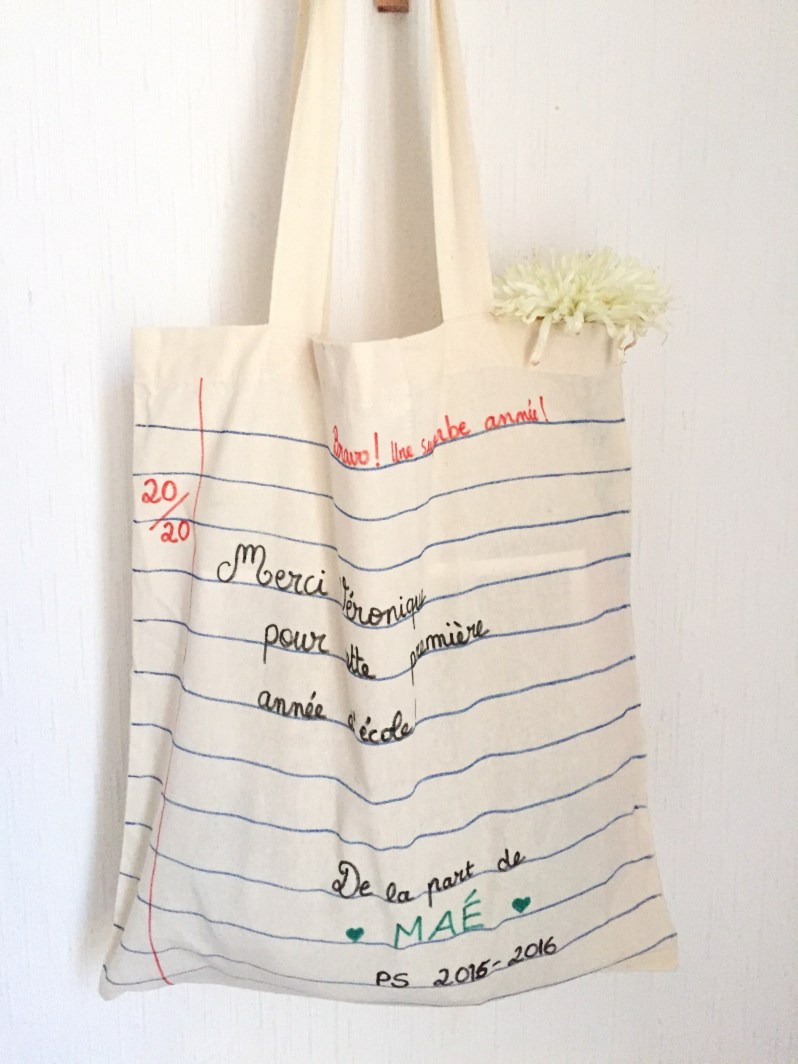 Bravo! Une superbe année!
20/20
Merci Véronique
pour cette première
année d'école
De la part de
MAÉ
PS 2015-2016